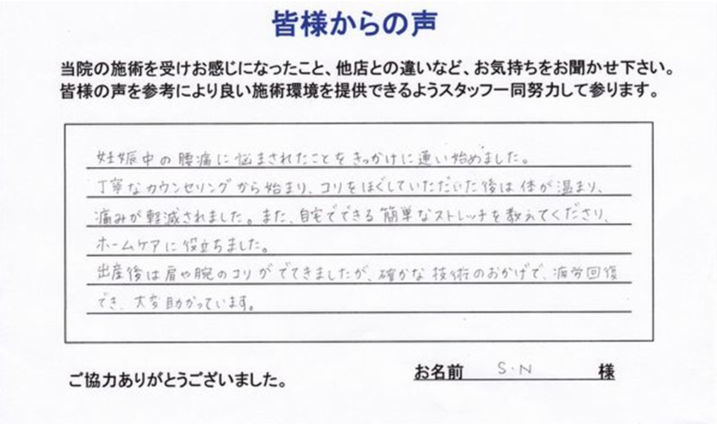 皆様からの声
当院の施術を受けお感じになったこと、他店との違いなど、お気持ちをお聞かせ下さい。
皆様の声を参考により良い施術環境を提供できるようスタッフ一同努力して参ります。
妊娠中の腰痛に悩まされたことをきっかけに通い始めました。
丁寧なカウンセリングから始まり、コリをほぐしていただいた後は体が温まり、
痛みが軽減されました。また、自宅でできる簡単なストレッチを教えてくださり、
ホームケアに役立ちました。
出産後は肩や腕のコリがでてきましたが、確かな技術のおかげで、疲労回復
でき、大変助かっています。
ご協力ありがとうございました。
お名前 S.N 様